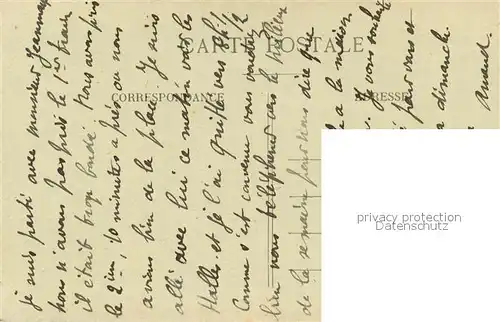 CARTE POSTALE
CORRESPONDANCE
ADRESSE
je suis parti avec monsieur
nous n'avons pas pris le 1er tram
il était trop bondé. nous avons pris
le 2ième 10 minutes après ou nous
avions bien de la place. Je suis
allé avec lui ce matin voir les
Halles et je l'ai quitté vers 9h1/2
Comme c'est convenu vous voudrez
bien nous téléphoner vers le milieu
de la semaine pour nous dire que
à la maison
Je vous souhaite
pour vous et
à dimanche.
privacy protection